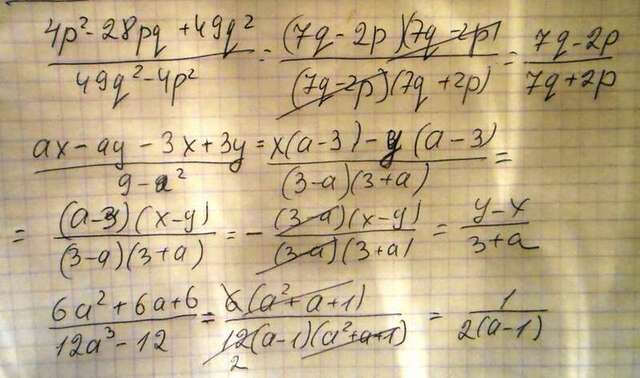 (4p² - 28pq + 49q²)/(49q² - 4p²) = ((7q - 2p)(7q - 2p))/((7q - 2p)(7q + 2p)) = (7q - 2p)/(7q + 2p)
(ax - ay - 3x + 3y)/(9 - a²) = (x(a - 3) - y(a - 3))/((3 - a)(3 + a)) =
= ((a - 3)(x - y))/((3 - a)(3 + a)) = - ((3 - a)(x - y))/((3 - a)(3 + a)) = (y - x)/(3 + a)
(6a² + 6a + 6)/(12a³ - 12) = (6(a² + a + 1))/(12(a - 1)(a² + a + 1)) = 1/(2(a - 1))
2